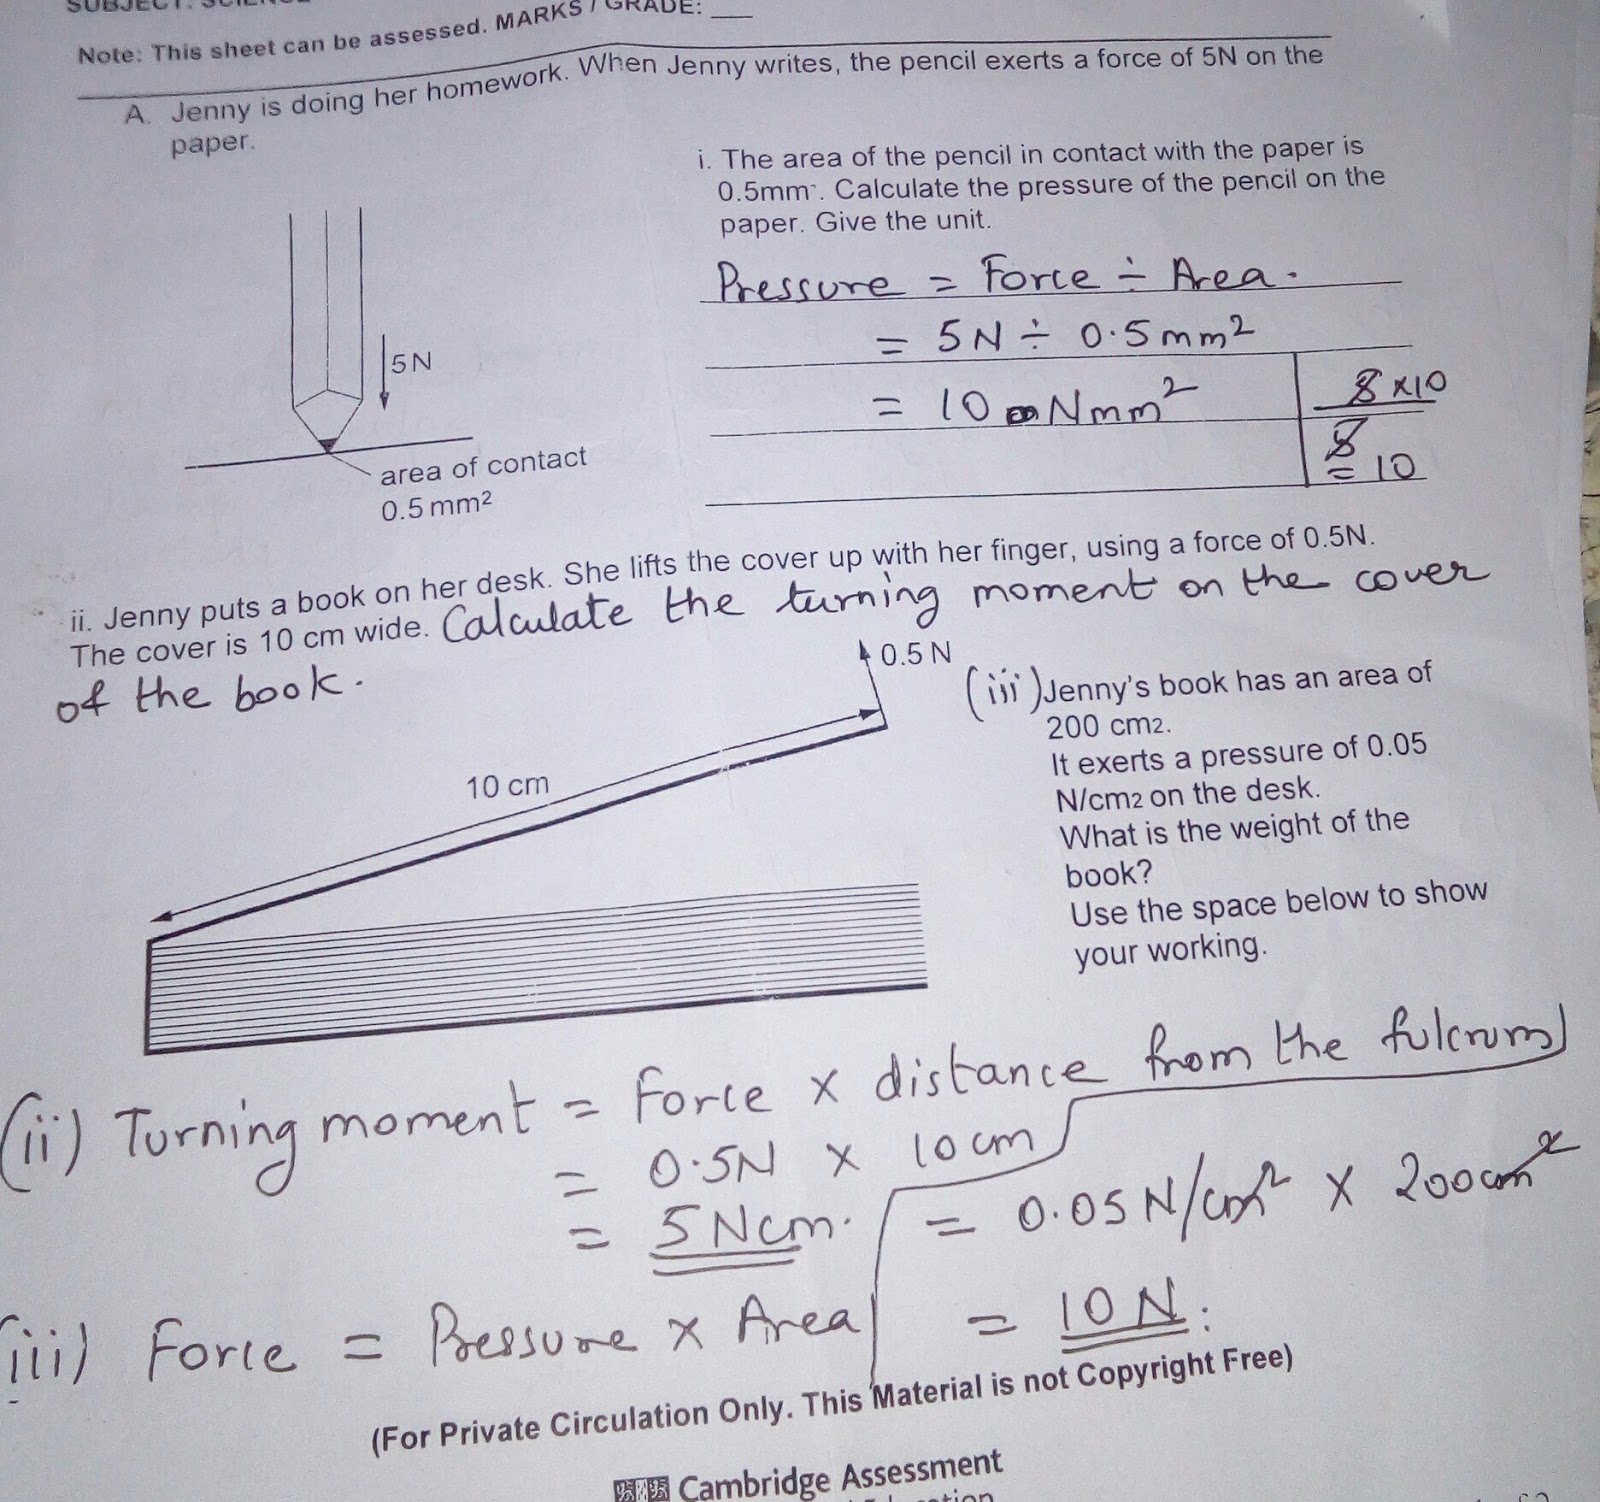 SUBJECT: SCIENCE
Note: This sheet can be assessed. MARKS / GRADE: ___
A. Jenny is doing her homework. When Jenny writes, the pencil exerts a force of 5N on the
paper.
i. The area of the pencil in contact with the paper is
0.5mm². Calculate the pressure of the pencil on the
paper. Give the unit.
Pressure = Force ÷ Area.
= 5N ÷ 0.5mm²
= 10 Nmm²
5 x10
5
= 10
5N
area of contact
0.5 mm²
ii. Jenny puts a book on her desk. She lifts the cover up with her finger, using a force of 0.5N.
The cover is 10 cm wide. Calculate the turning moment on the cover
of the book.
0.5 N
10 cm
(iii) Jenny's book has an area of
200 cm2.
It exerts a pressure of 0.05
N/cm2 on the desk.
What is the weight of the
book?
Use the space below to show
your working.
(ii) Turning moment = Force x distance from the fulcrum
= 0.5N x 10cm
= 5 Ncm.
(iii) Force = Pressure x Area
= 0.05 N/cm² x 200cm²
= 10 N.
(For Private Circulation Only. This Material is not Copyright Free)
Cambridge Assessment